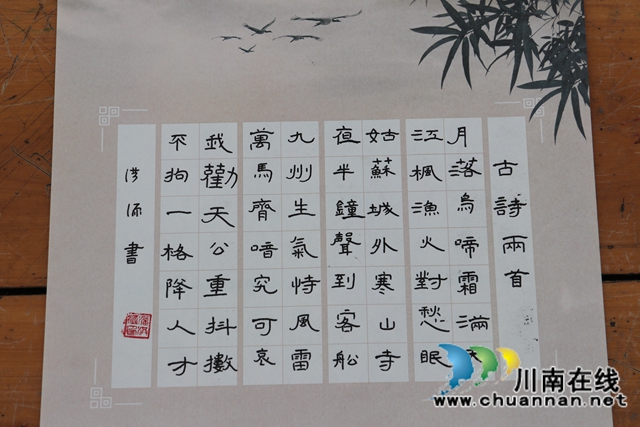 古詩兩首
月落烏啼霜滿
江楓漁火對愁眠
姑蘇城外寒山寺
夜半鐘聲到客船
九州生氣恃風雷
萬馬齊喑究可哀
我勸天公重抖擻
不拘一格降人才
書
川南在线
www.chuannan.net